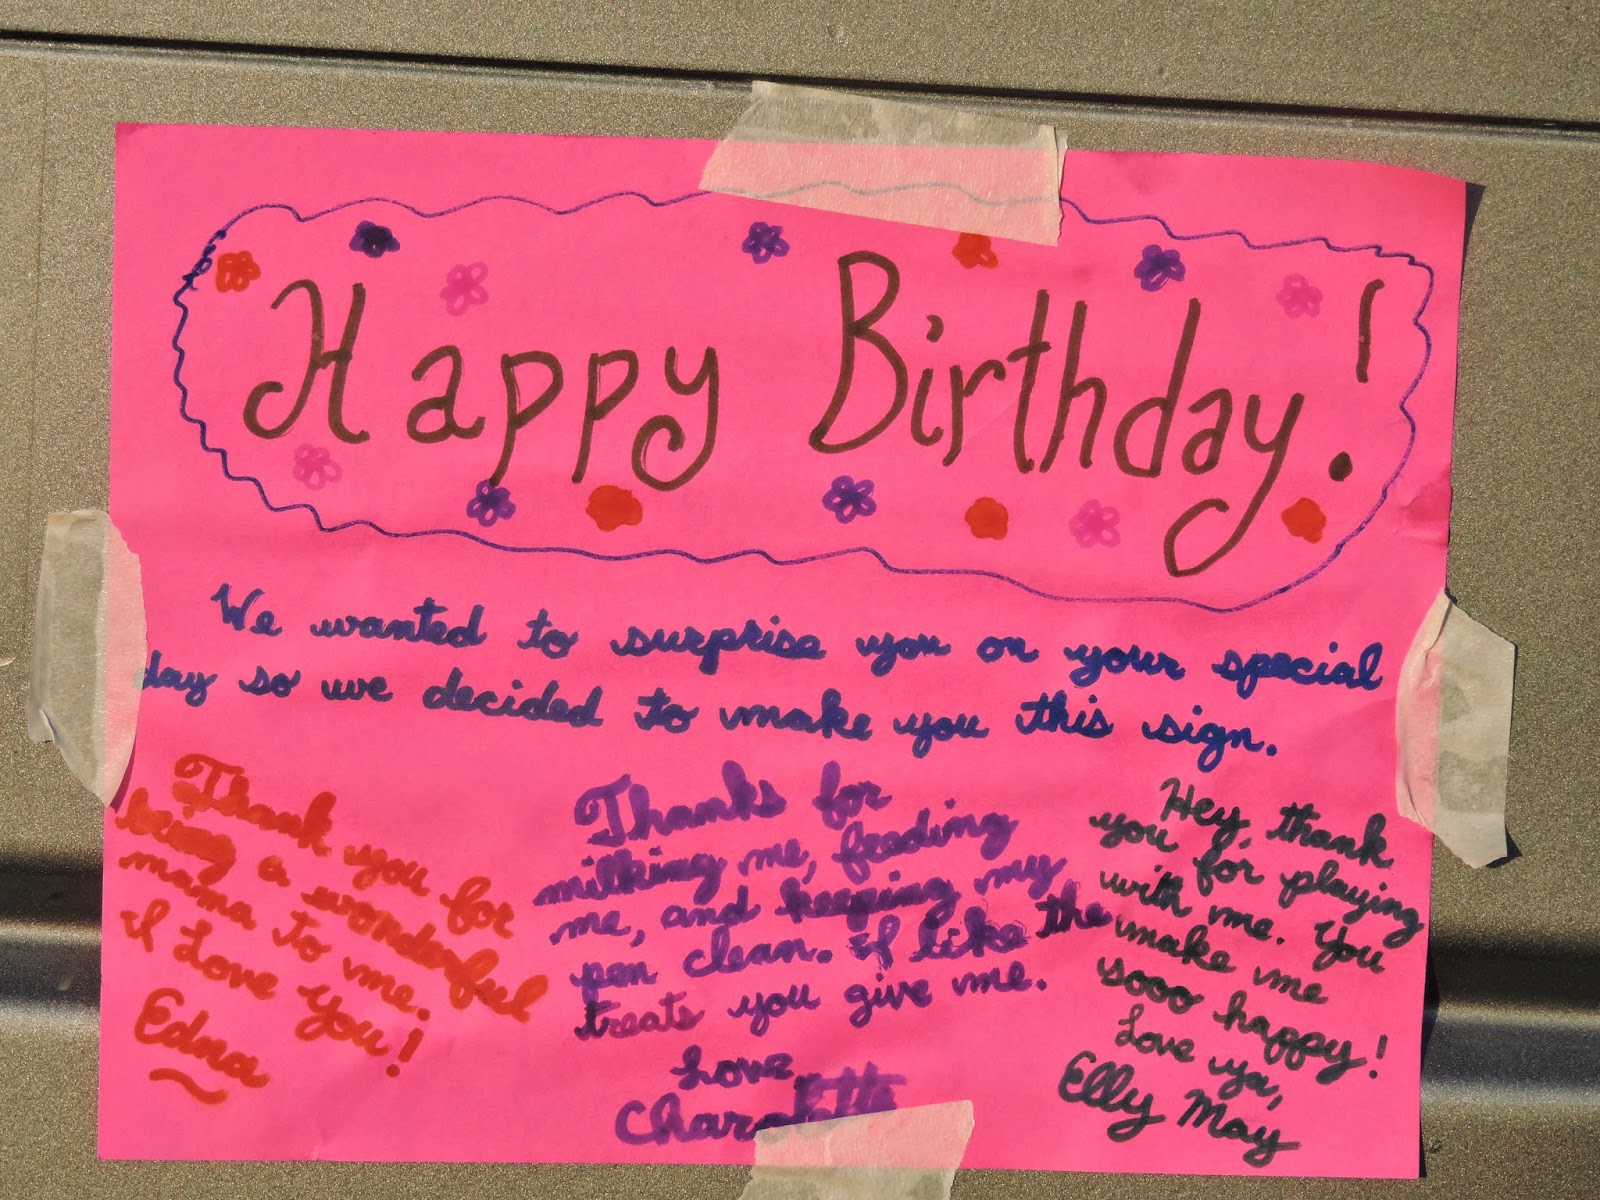 Happy Birthday!
We wanted to surprise you on your special
day so we decided to make you this sign.
Thank you for
being a wonderful
mama to me.
I Love you!
Edna
Thanks for
milking me, feeding
me, and keeping my
pen clean. I like the
treats you give me.
Love
Charolotte
Hey, thank
you for playing
with me. You
make me
sooo happy!
Love ya,
Elly May